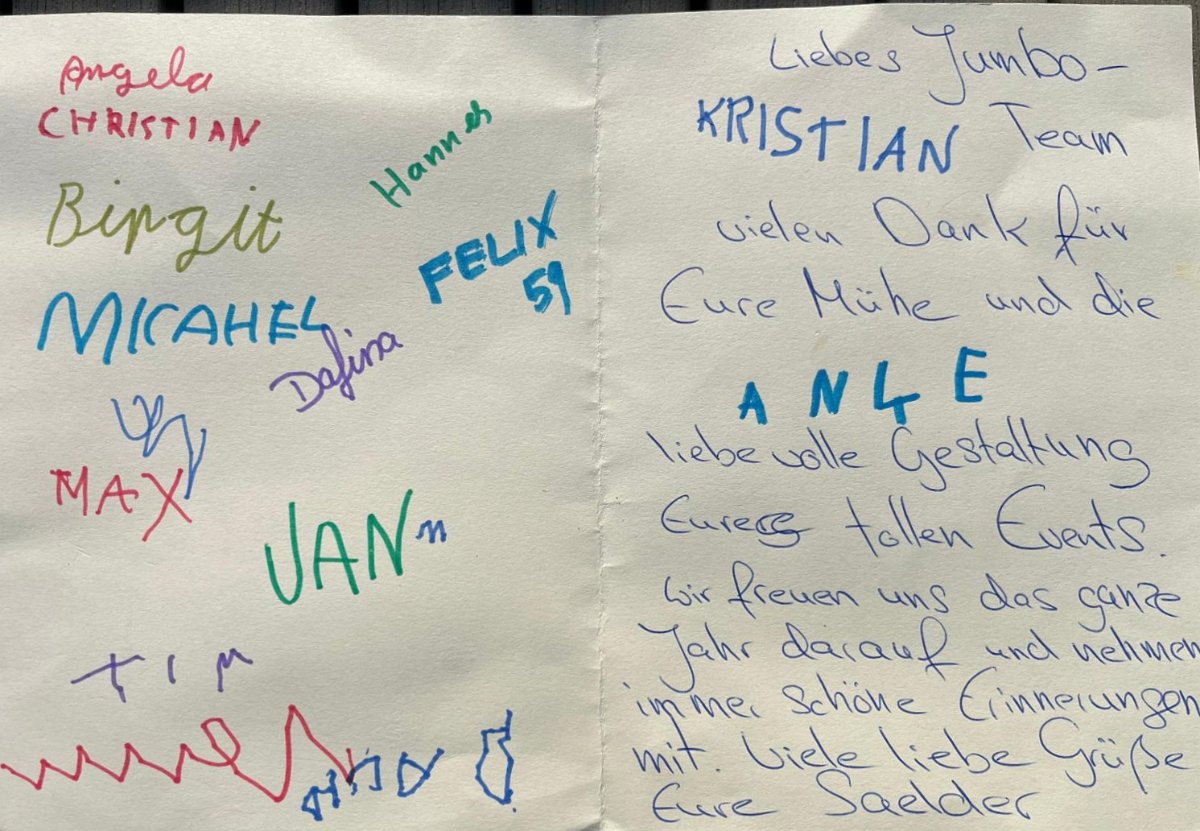 Angela
CHRISTIAN
Hannes
Birgit
FELIX
59
MICAHEL
Dafina
MAX
JAN
TIM
Liebes Jumbo-
KRISTIAN Team
vielen Dank für
Eure Mühe und die
liebevolle Gestaltung
Eures tollen Events.
Wir freuen uns das ganze
Jahr darauf und nehmen
immer schöne Erinnerungen
mit. Viele liebe Grüße
Eure Saelder